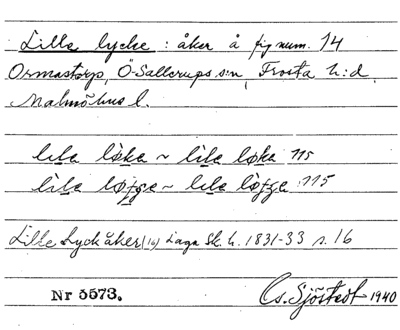 Lille lycke : åker å fig num. 14
Ormastorp, Ö Sallerups s:n, Frosta h:d,
Malmöhus l.
lila løka ~ lila løka 115
lila løjga ~ lila løjga 115
Lille Lyck åker (14) Laga Sk. h. 1831-33 s. 16
Nr 5573. G. Sjöstedt 1940